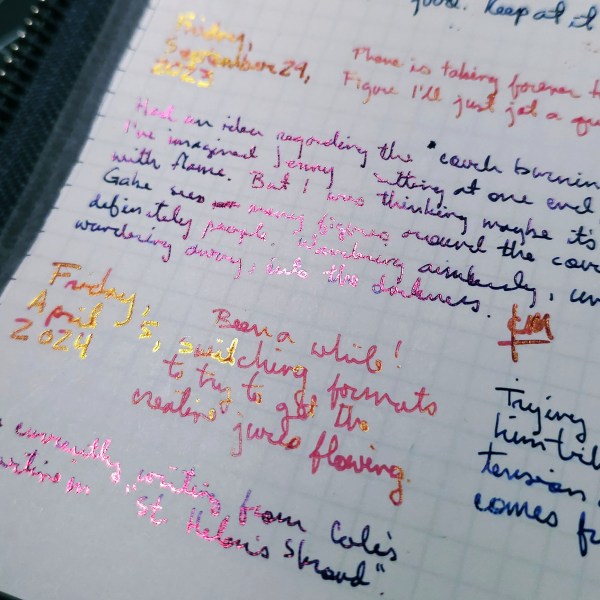 good. Keep at it
Friday,
September 29,
2023
Phone is taking forever
Figure I'll just jot a
Had an idea regarding the "couch
I've imagined Jenny sitting at one end
with flame. But I was thinking maybe it's
Gabe sees many figures around the
definitely people. Wandering aimlessly,
wandering away, into the darkness.
Friday,
April 5,
2024
Been a while!
switching formats
to try to get the
creative juices flowing.
currently writing from Cole's
"St. Helen's Shroud".
Trying
tension
comes